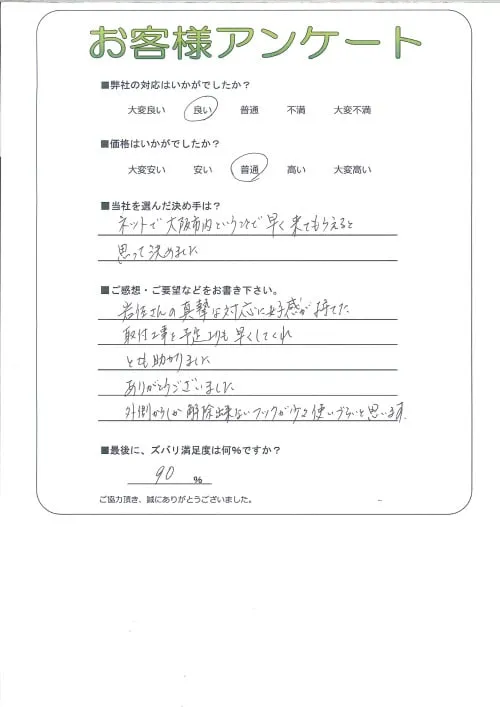 お客様アンケート
■弊社の対応はいかがでしたか？
大変良い 良い 普通 不満 大変不満
■価格はいかがでしたか？
大変安い 安い 普通 高い 大変高い
■当社を選んだ決め手は？
ネットで大阪市内ということで早く来てもらえると
思って決めました
■ご感想・ご要望などをお書き下さい。
岩佐さんの真摯な対応に好感が持てた
取付工事を予定よりも早くしてくれ
とても助かりました
ありがとうございました
外側からしか解除出来ないフックが少々使いづらいと思います.
■最後に、ズバリ満足度は何％ですか？
90 ％
ご協力頂き、誠にありがとうございました。